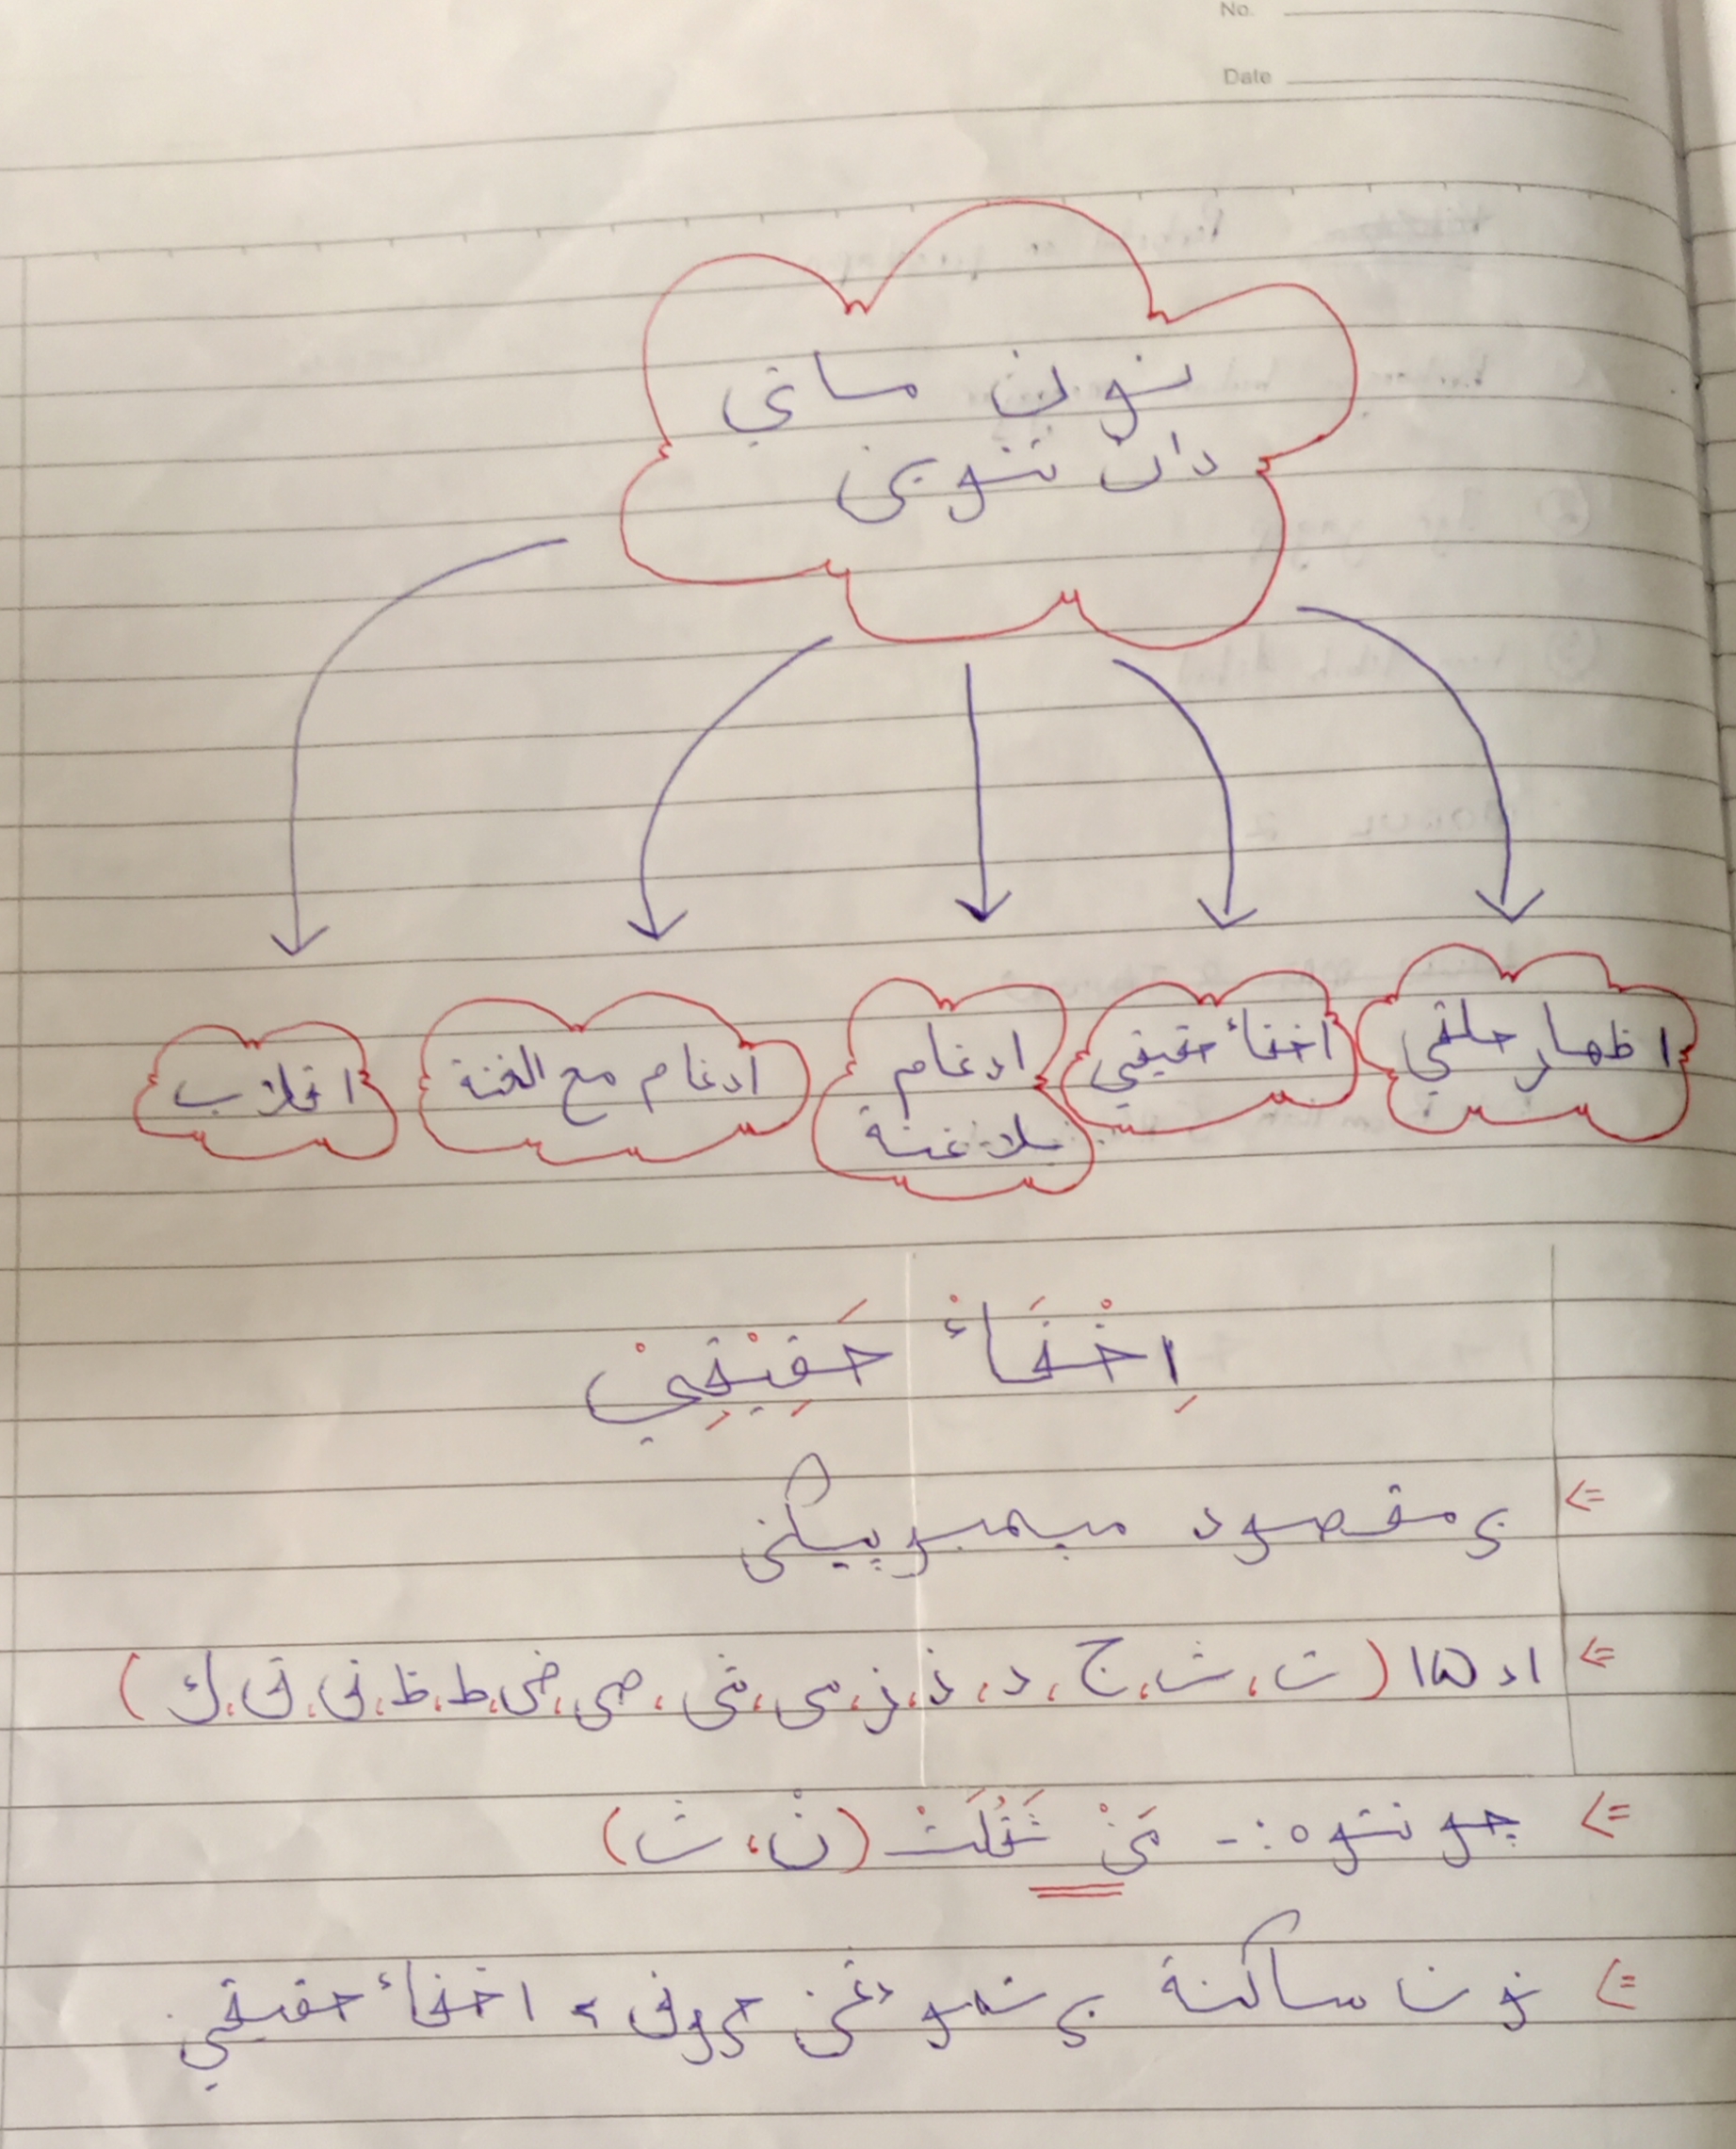 No.
Date
نون ماتي
دان تنوين
اظهار حلقي
اخفاٴ حقيقي
ادغام
بلا غنة
ادغام مع الغنة
اقلاب
اِخْفَاءْ حَقِيْقِيْ
=> برمقصود ميمبوپيكن
=> اد ١٥ (ت، ث، ج، د، ذ، ز، س، ش، ص، ض، ط، ظ، ف، ق، ك)
=> چونتوه :- مَنْ ثَقُلَتْ (نْ، ث)
=> نون ساكنة برتمو دغن حروف٢ اخفاٴ حقيقي